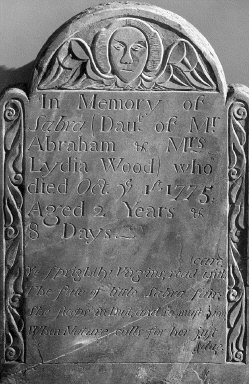 In Memory of
Sabra (Daur. of Mr
Abraham & Mrs
Lydia Wood) who
died Oct. ye 1st 1775.
Aged 2 Years &
8 Days.
care,
Ye sprightly Virgins, read with
The fate of little Sabra fair.
She sleeps in dust, and so must
When Nature calls for her just